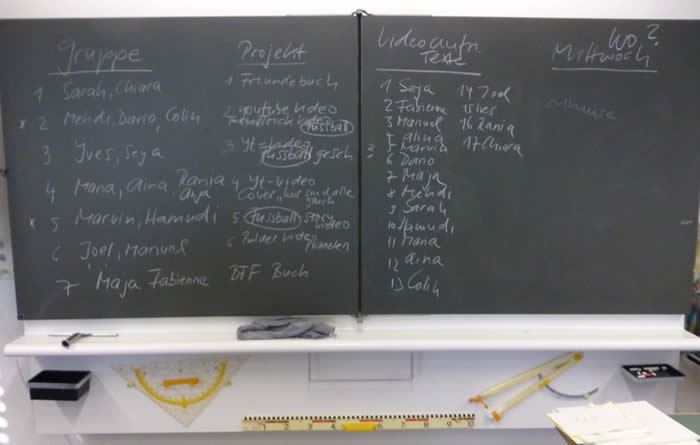 Gruppe
1 Sarah, Chiara
x 2 Mehdi, Dario, Colin
3 Yves, Seya
4 Mana, Aina, Rania
Anja
x 5 Marvin, Hamudi
6 Joel, Manuel
7 Maja Fabienne
Projekt
1 Freundebuch
2 youtube video
fussball
3 Yt-video
fussball gesch
4 Yt-video
Cover, wir sind alle
gleich
5 fussball story
video
6 Bilder Video
BFF Buch
Videoaufn.
Texte
1 Seya
2 Fabienne
3 Manuel
4 alina
5 Marvin
6 Dario
7 Maja
8 Mehdi
9 Sarah
10 Hamudi
11 Mana
12 aina
13 Colin
14 Joel
15 Ives
16 Rania
17 Chiara
Wo?
Mittwoch
zuhause
1 2 3 4 5 6 7 8 9 10